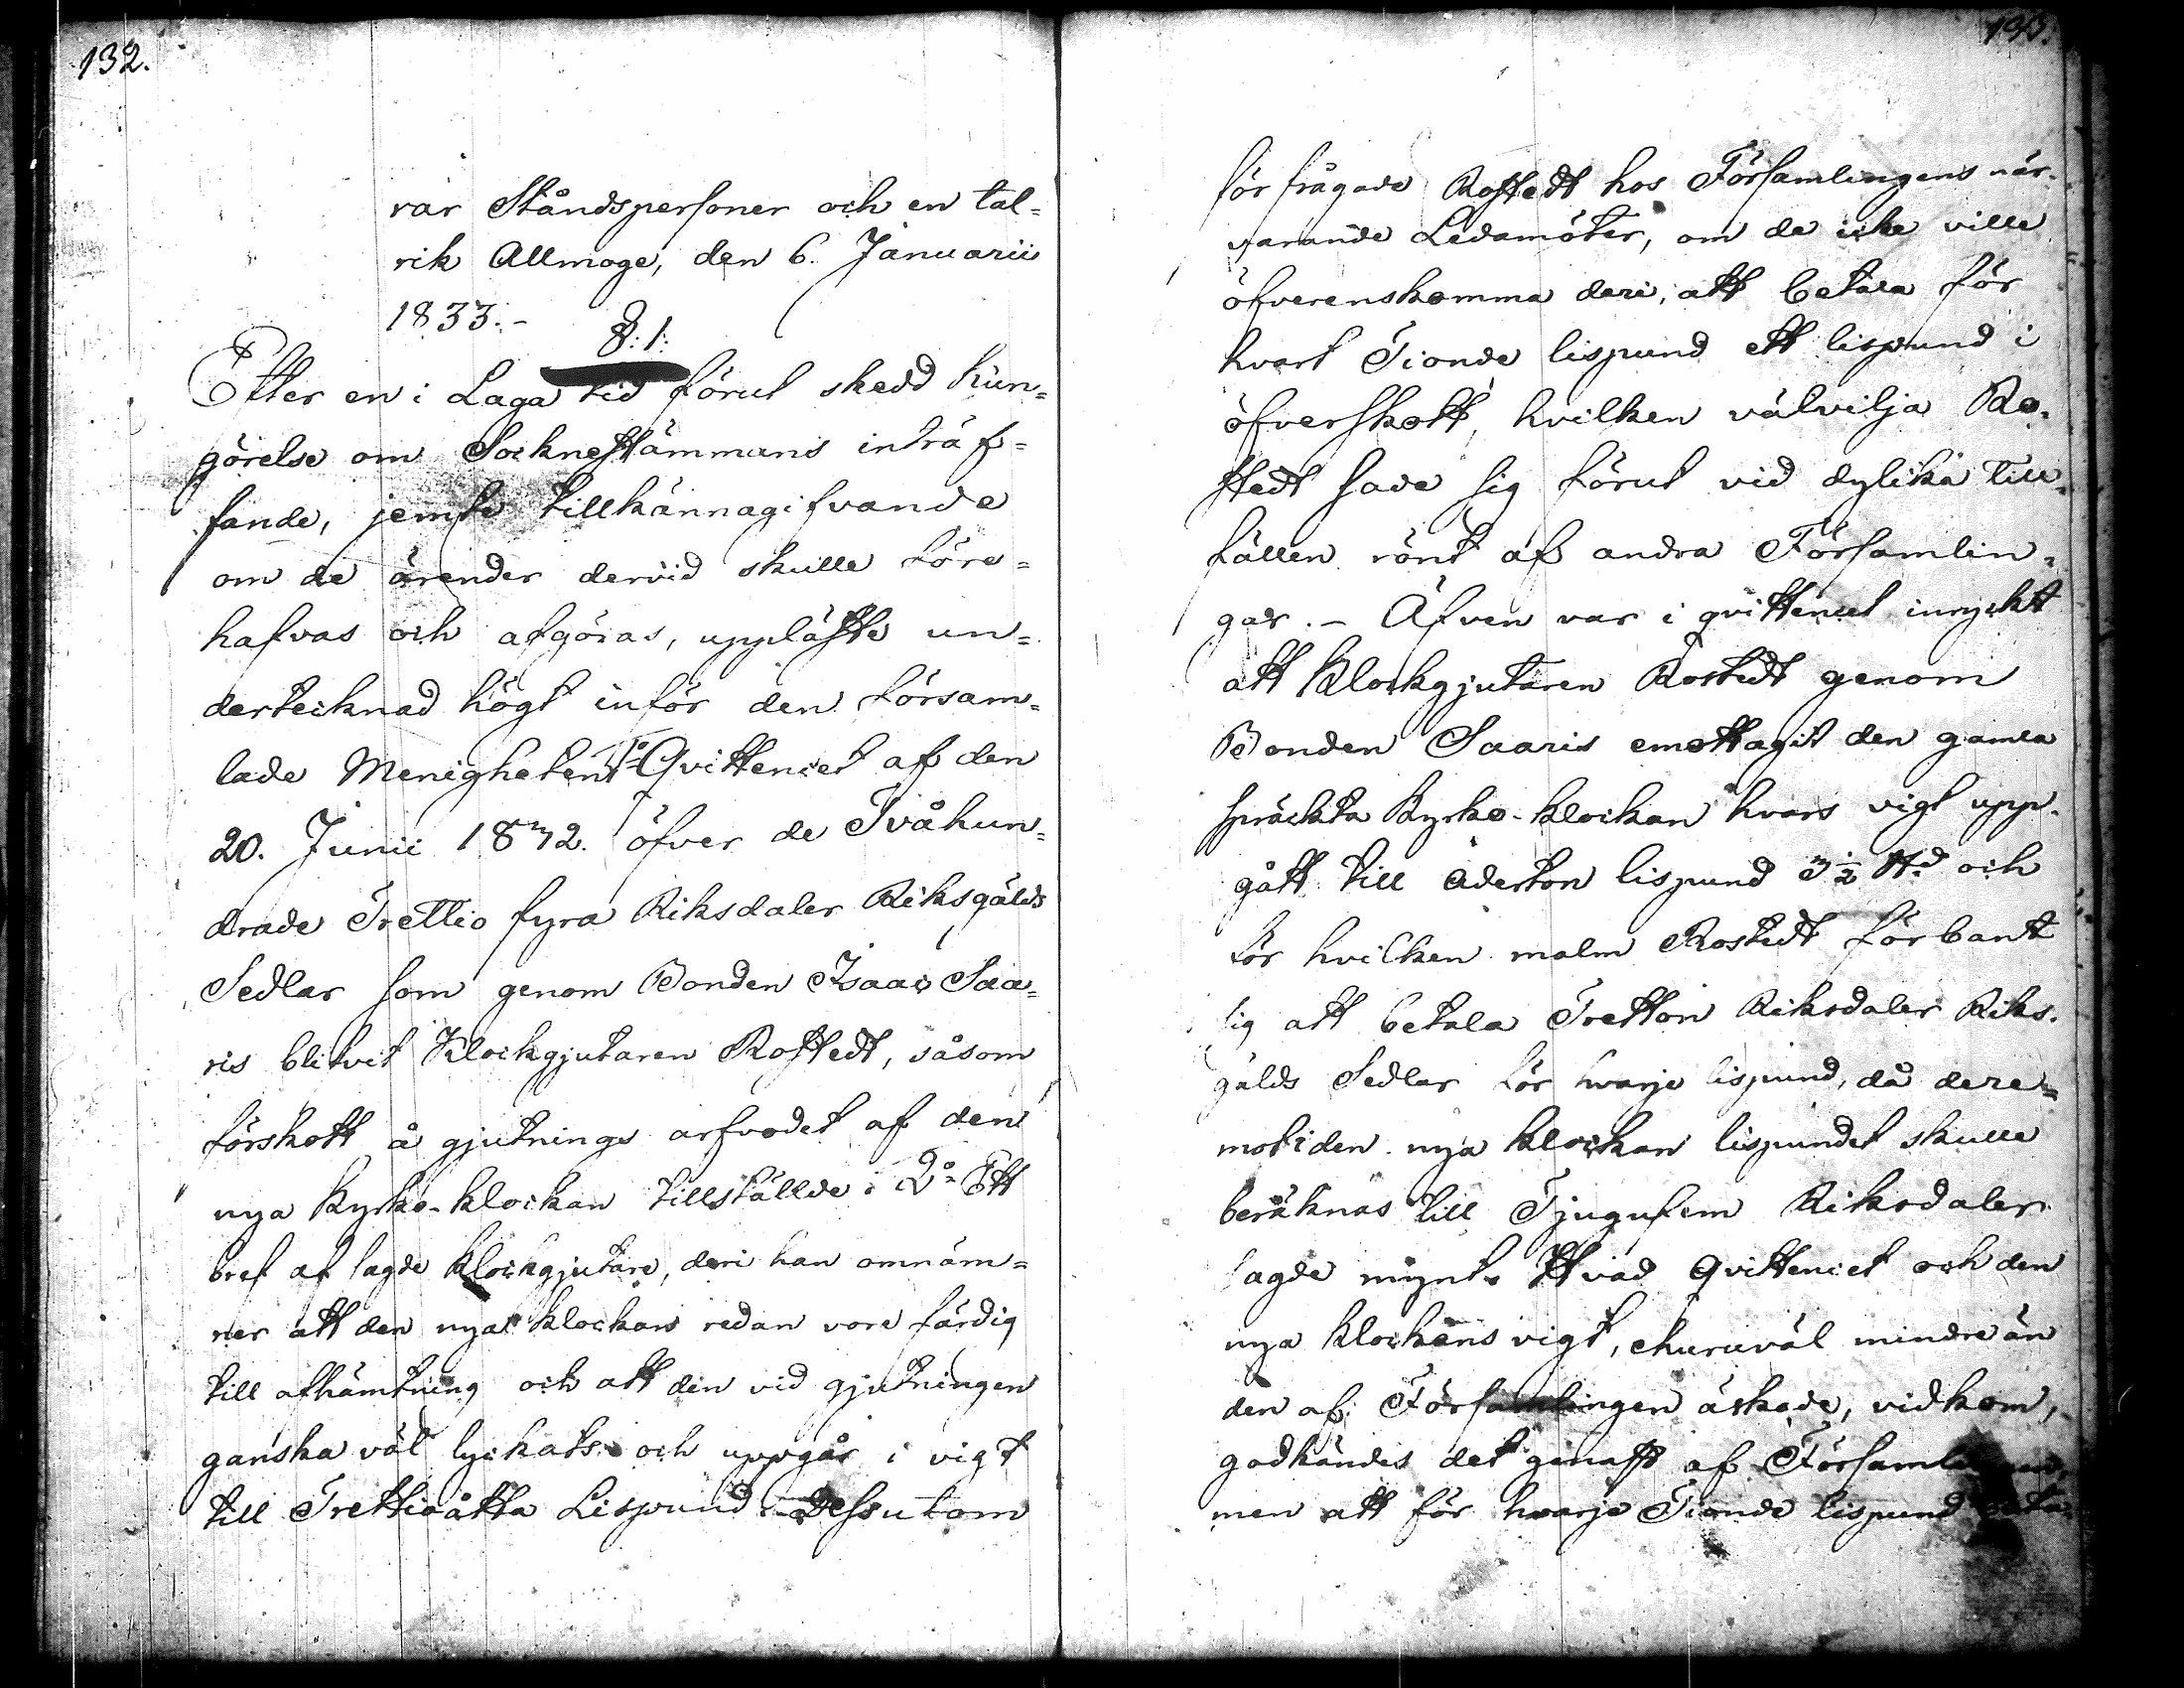 132.
rar Ståndspersoner och en tal=
rik Allmoge, den 6. Januarii
1833.-
§:1:
Efter en i Laga tid förut skedd kun=
görelse om Sockneftämmans inträf=
fande, jemte tillkännagifvande
om de ärender dervid skulle före=
hafvas och afgöras, uppläste un=
dertecknad högt inför den försam=
lade Menigheten 1º Qvittencet af den
20. Junii 1832. öfver de Tvåhun=
drade Trettio fyra Riksdaler Riksgälds
Sedlar som genom Bonden Isaac Saa=
ris blifvit Klockgjutaren Rostedt, såsom
förskott å gjutnings arfvodet af den
nya Kyrko-klockan tillställde: 2º Ett
bref af sagde klockgjutare, deri han omnäm=
ner att den nya klockan redan vore färdig
till afhämtning och att den vid gjutningen
ganska väl lyckats och uppgår i vigt
till Trettioåtta Lispund. Dessutom
förfrågade Rostedt hos Församlingens när-
varande Ledamöter, om de icke ville
öfverenskomma deri, att betala för
hvart Tionde lispund ett lispund i
öfverskott, hvilken välvilja Ro-
stedt sade sig förut vid dylika till-
fällen rönt af andra Försam­lin-
gar. - Äfven var i qvittencet inryckt
att Klockgjutaren Rostedt genom
Bonden Saaris emottagit den gamla
spräckta Kyrko-klockan hvars vigt upp-
gått till Aderton lispund 3½ ℔d och
för hvilken malm Rostedt förbant
sig att betala Tretton Riksdaler Riks-
gälds Sedlar för hvarje lispund, då dere=
mot i den nya klockan lispundet skulle
beräknas till Tjugufem Riksdaler
sagde mynt. Hvad Qvittencet och den
nya klockans vigt, ehuruväl mindre än
den af Församlingen äskade, vidkom,
godkändes det genast af
men att för hvarje Tionde lispund